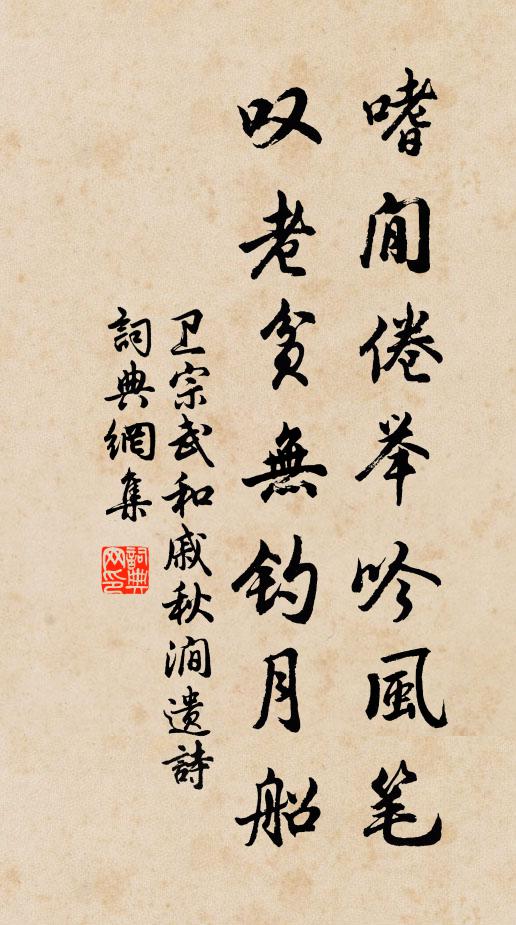 嗜閒倦举吟風笔
叹老貧無釣月船
卫宗武和戚秋澗遗詩
詞典網集
詞典网印